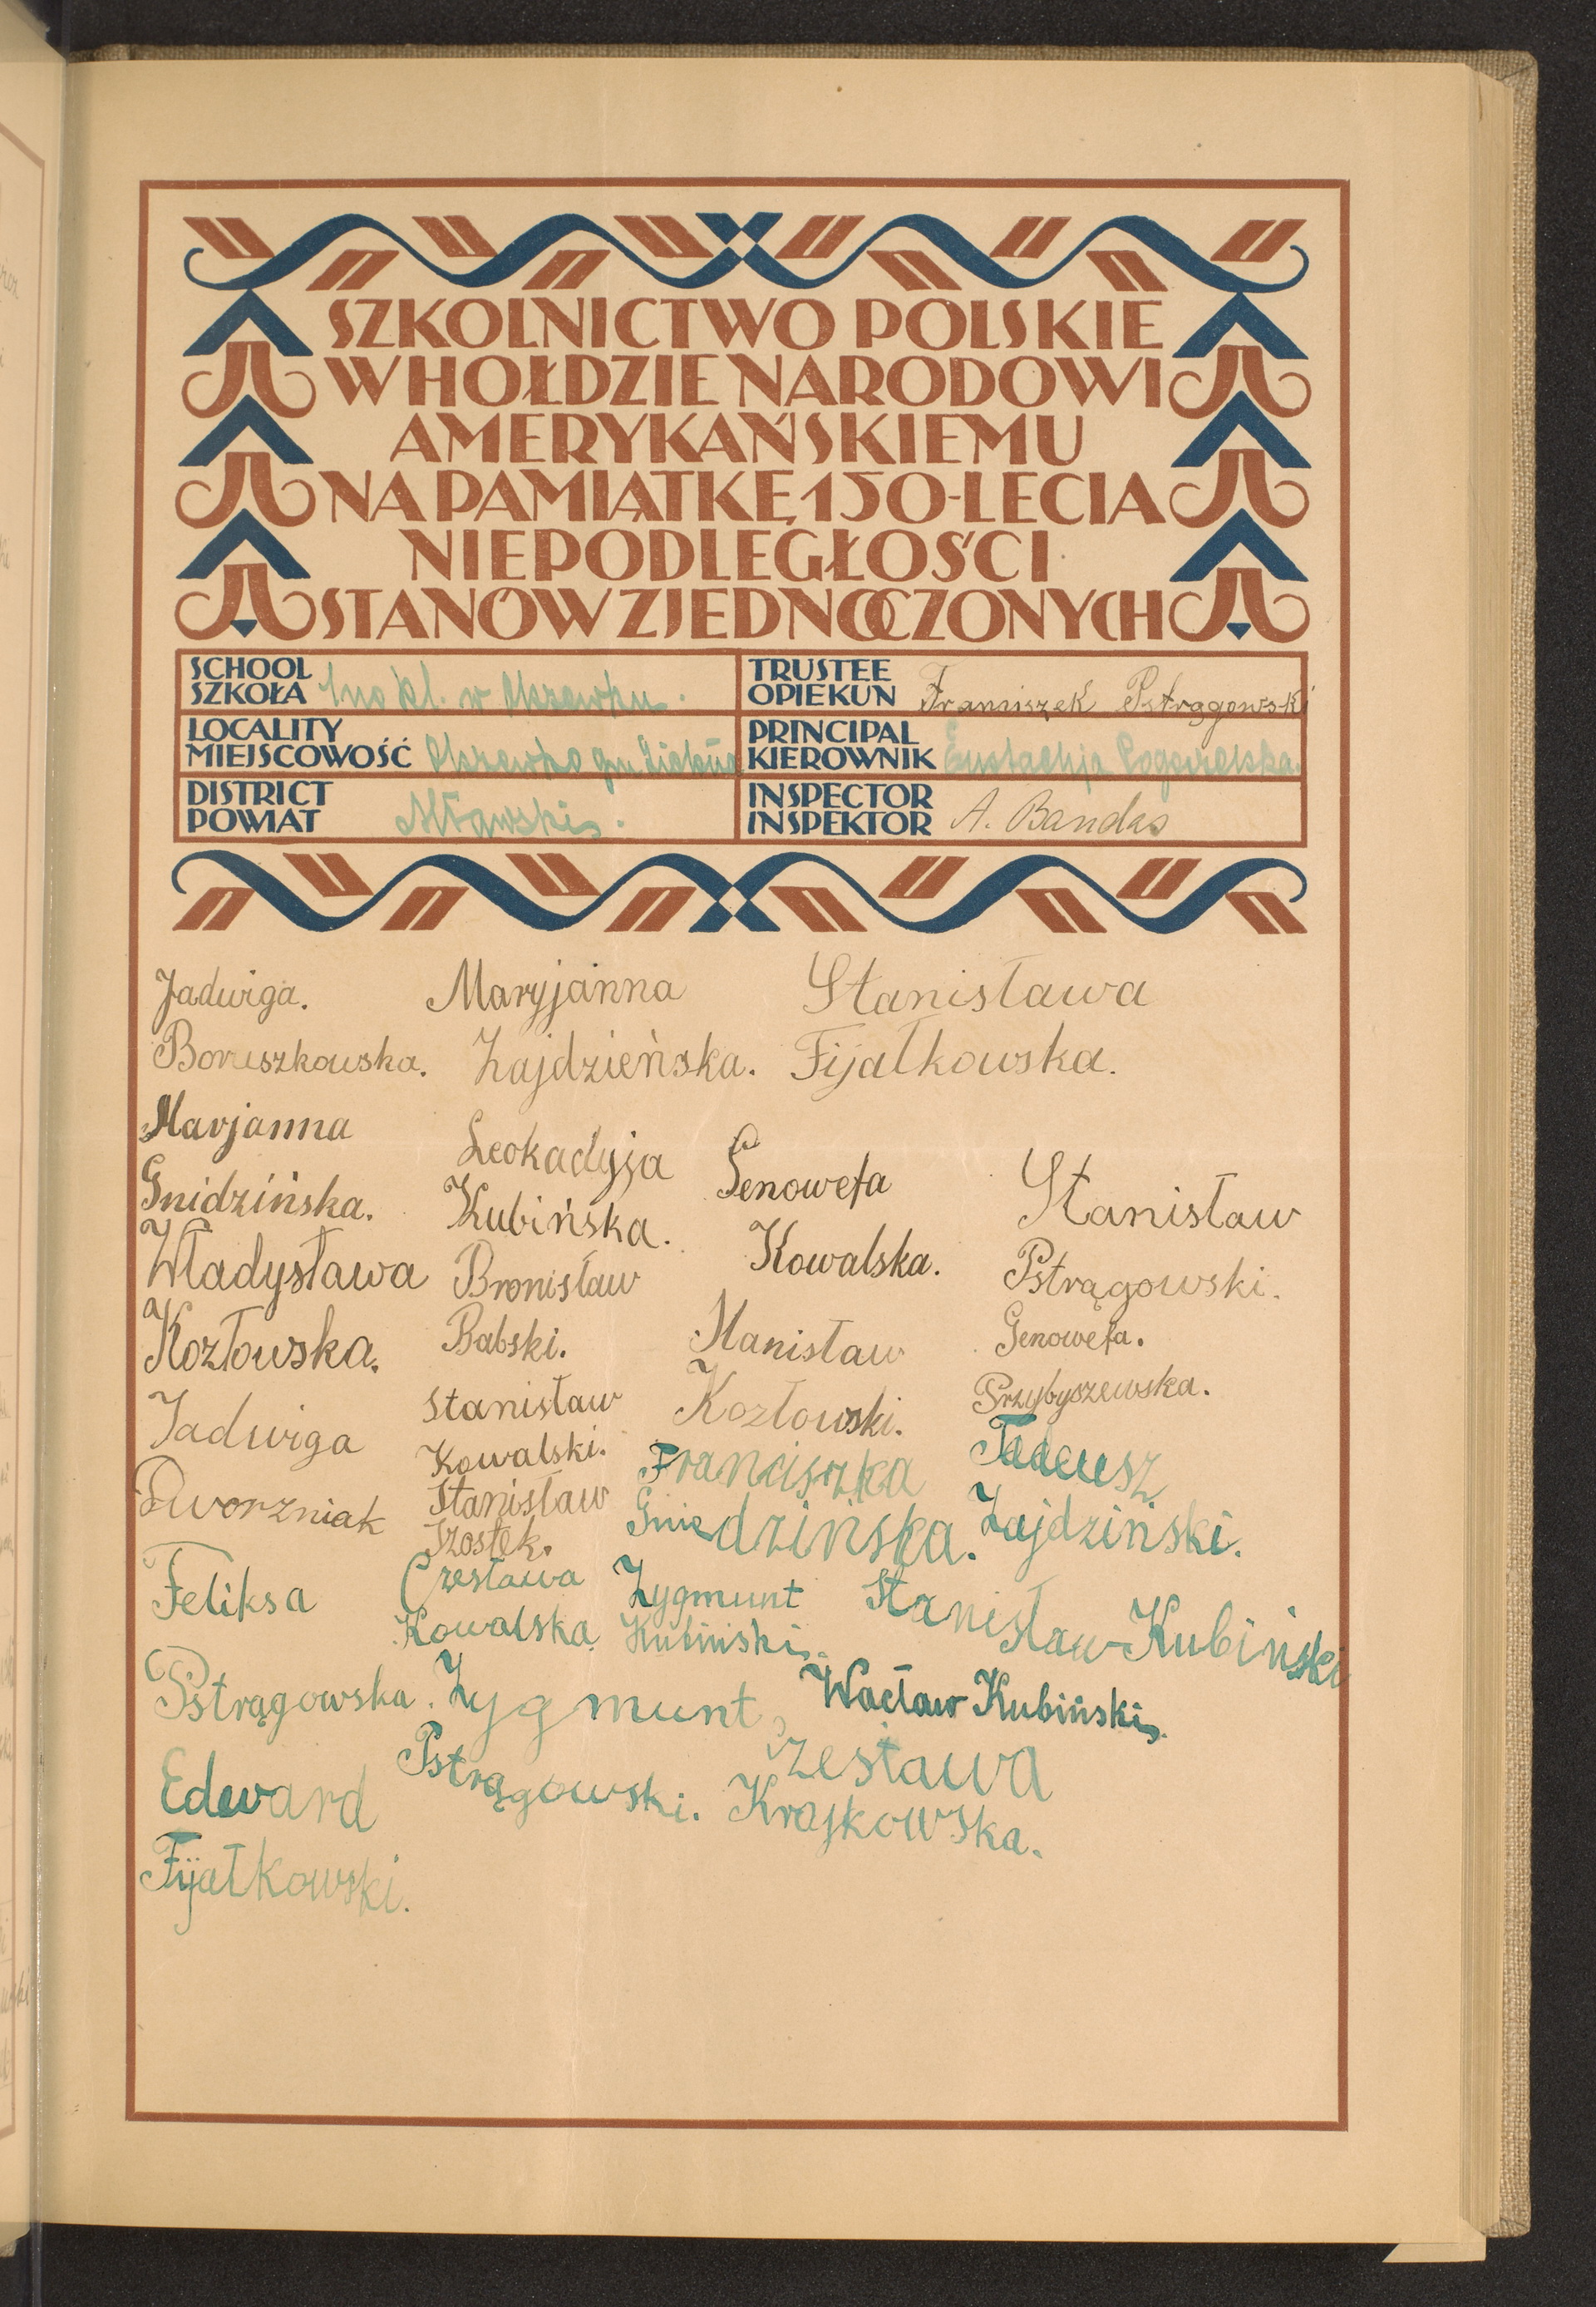 SZKOLNICTWO POLSKIE
W HOŁDZIE NARODOWI
AMERYKAŃSKIEMU
NA PAMIĄTKĘ 150-LECIA
NIEPODLEGŁOŚCI
STANÓW ZJEDNOCZONYCH
SCHOOL
SZKOŁA 1no kl. w Olszewku.
TRUSTEE
OPIEKUN Franciszek Pstrągowski
LOCALITY
MIEJSCOWOŚĆ Olszewko gm.
PRINCIPAL
KIEROWNIK Eustachja Pogorzelska.
DISTRICT
POWIAT Mławski.
INSPECTOR
INSPEKTOR A. Bandas
Jadwiga.
Boruszkowska.
Maryjanna
Zajdzieńska.
Stanisława
Fijałkowska.
Marjanna
Gnidzińska.
Leokadyja
Kubińska.
Genowefa
Kowalska.
Stanisław
Pstrągowski.
Władysława
Kozłowska.
Bronisław
Babski.
Stanisław
Kozłowski.
Genowefa.
Przybyszewska.
Jadwiga
Dworzniak
Stanisław
Kowalski.
Stanisław
Szostek.
Franciszka
Gniedzińska.
Tadeusz
Zajdziński.
Feliksa
Pstrągowska.
Czesława
Kowalska
Zygmunt
Kubiński.
Stanisław Kubiński
Zygmunt
Pstrągowski.
Wacław Kubiński.
Czesława
Krajkowska.
Edward
Fijałkowski.